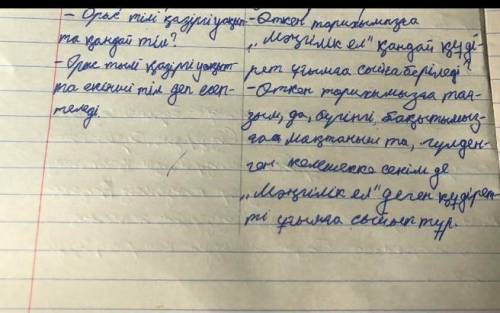 - Орыс тілі қазіргі уақыт-
та қандай тіл?
- Орыс тілі қазіргі уақыт
та екінші тіл деп есеп-
теледі.
- Өткен тарихымызға
„Мәңгілік ел" қандай құді-
рет ұғымға сыйға беріледі?
- Өткен тарихымызға тағ-
зым, да, бүгінгі, бақытымыз-
ға мақтаныш та, гүлден-
ген келешекке сенім де
„Мәңгілік ел" деген құдірет-
ті ұғымға сыйып тұр.